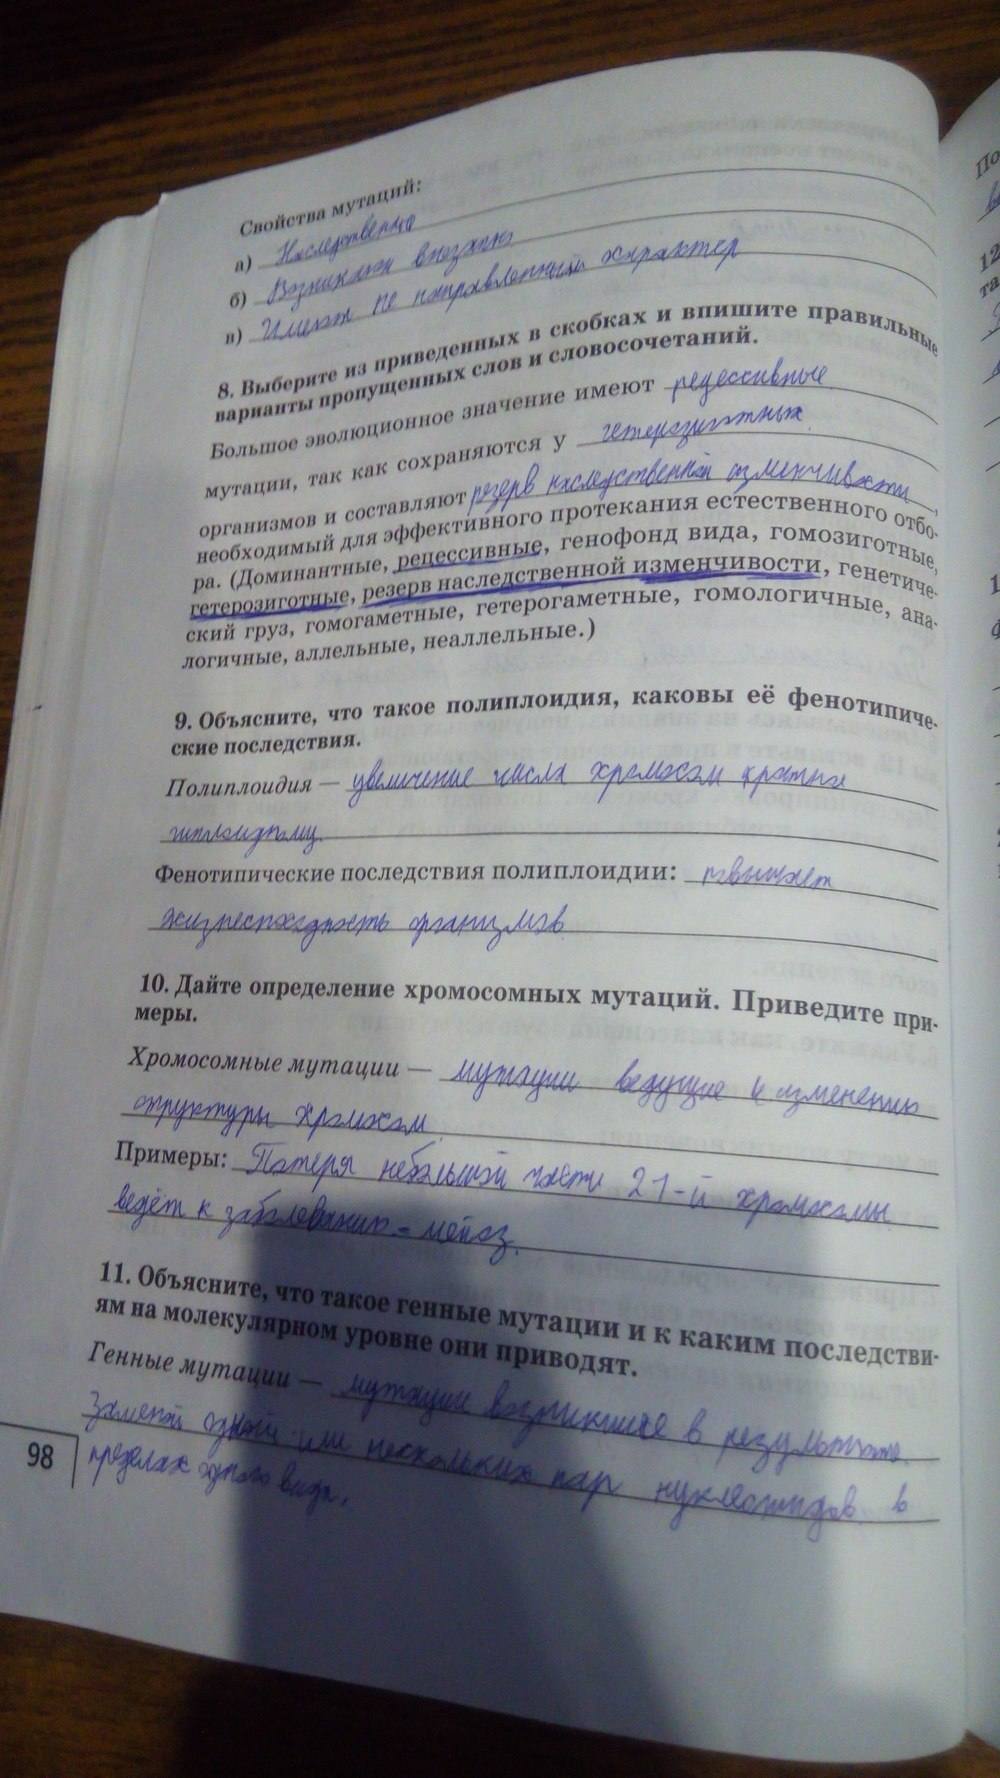 Свойства мутаций:
а) Наследственно
б) Возникли внезапно
в) Имеют не направленный характер
8. Выберите из приведенных в скобках и впишите правильные
варианты пропущенных слов и словосочетаний.
Большое эволюционное значение имеют рецессивные
мутации, так как сохраняются у гетерозиготных
организмов и составляют резерв наследственной изменчивости,
необходимый для эффективного протекания естественного отбо-
ра. (Доминантные, рецессивные, генофонд вида, гомозиготные,
гетерозиготные, резерв наследственной изменчивости, генетиче-
ский груз, гомогаметные, гетерогаметные, гомологичные, ана-
логичные, аллельные, неаллельные.)
9. Объясните, что такое полиплоидия, каковы её фенотипиче-
ские последствия.
Полиплоидия — увеличение числа хромосом кратна
гиплоидному.
Фенотипические последствия полиплоидии: повышает
жизнеспосодность организмов
10. Дайте определение хромосомных мутаций. Приведите при-
меры.
Хромосомные мутации — мутации ведущие к изменению
структуры хромосом.
Примеры: Потеря небольшой части 21-й хромосомы
ведёт к заболеванию - мейоз.
11. Объясните, что такое генные мутации и к каким последстви-
ям на молекулярном уровне они приводят.
Генные мутации — мутации возникшие в результате
Заменой одной или нескольких пар нуклеотидов в
пределах одного вида.
98
По
12
та